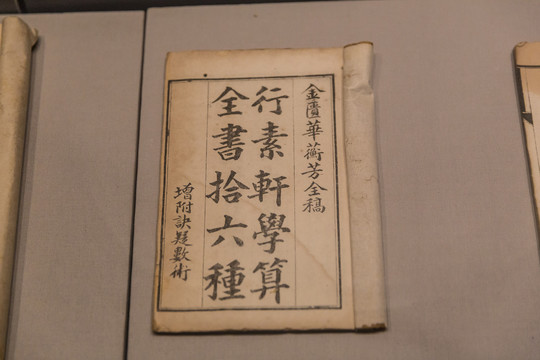 金匱華蘅芳全稿
行素軒學算
全書拾六種
增附訣疑數術